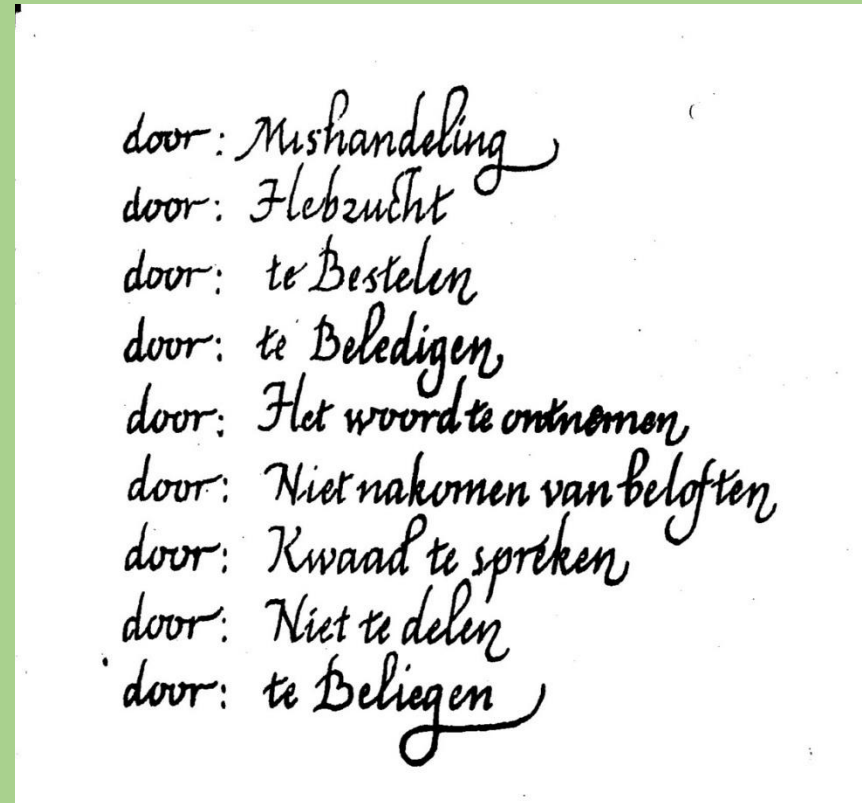 door: Mishandeling
door: Hebzucht
door: te Bestelen
door: te Beledigen
door: Het woord te ontnemen
door: Niet nakomen van beloften
door: Kwaad te spreken
door: Niet te delen
door: te Beliegen